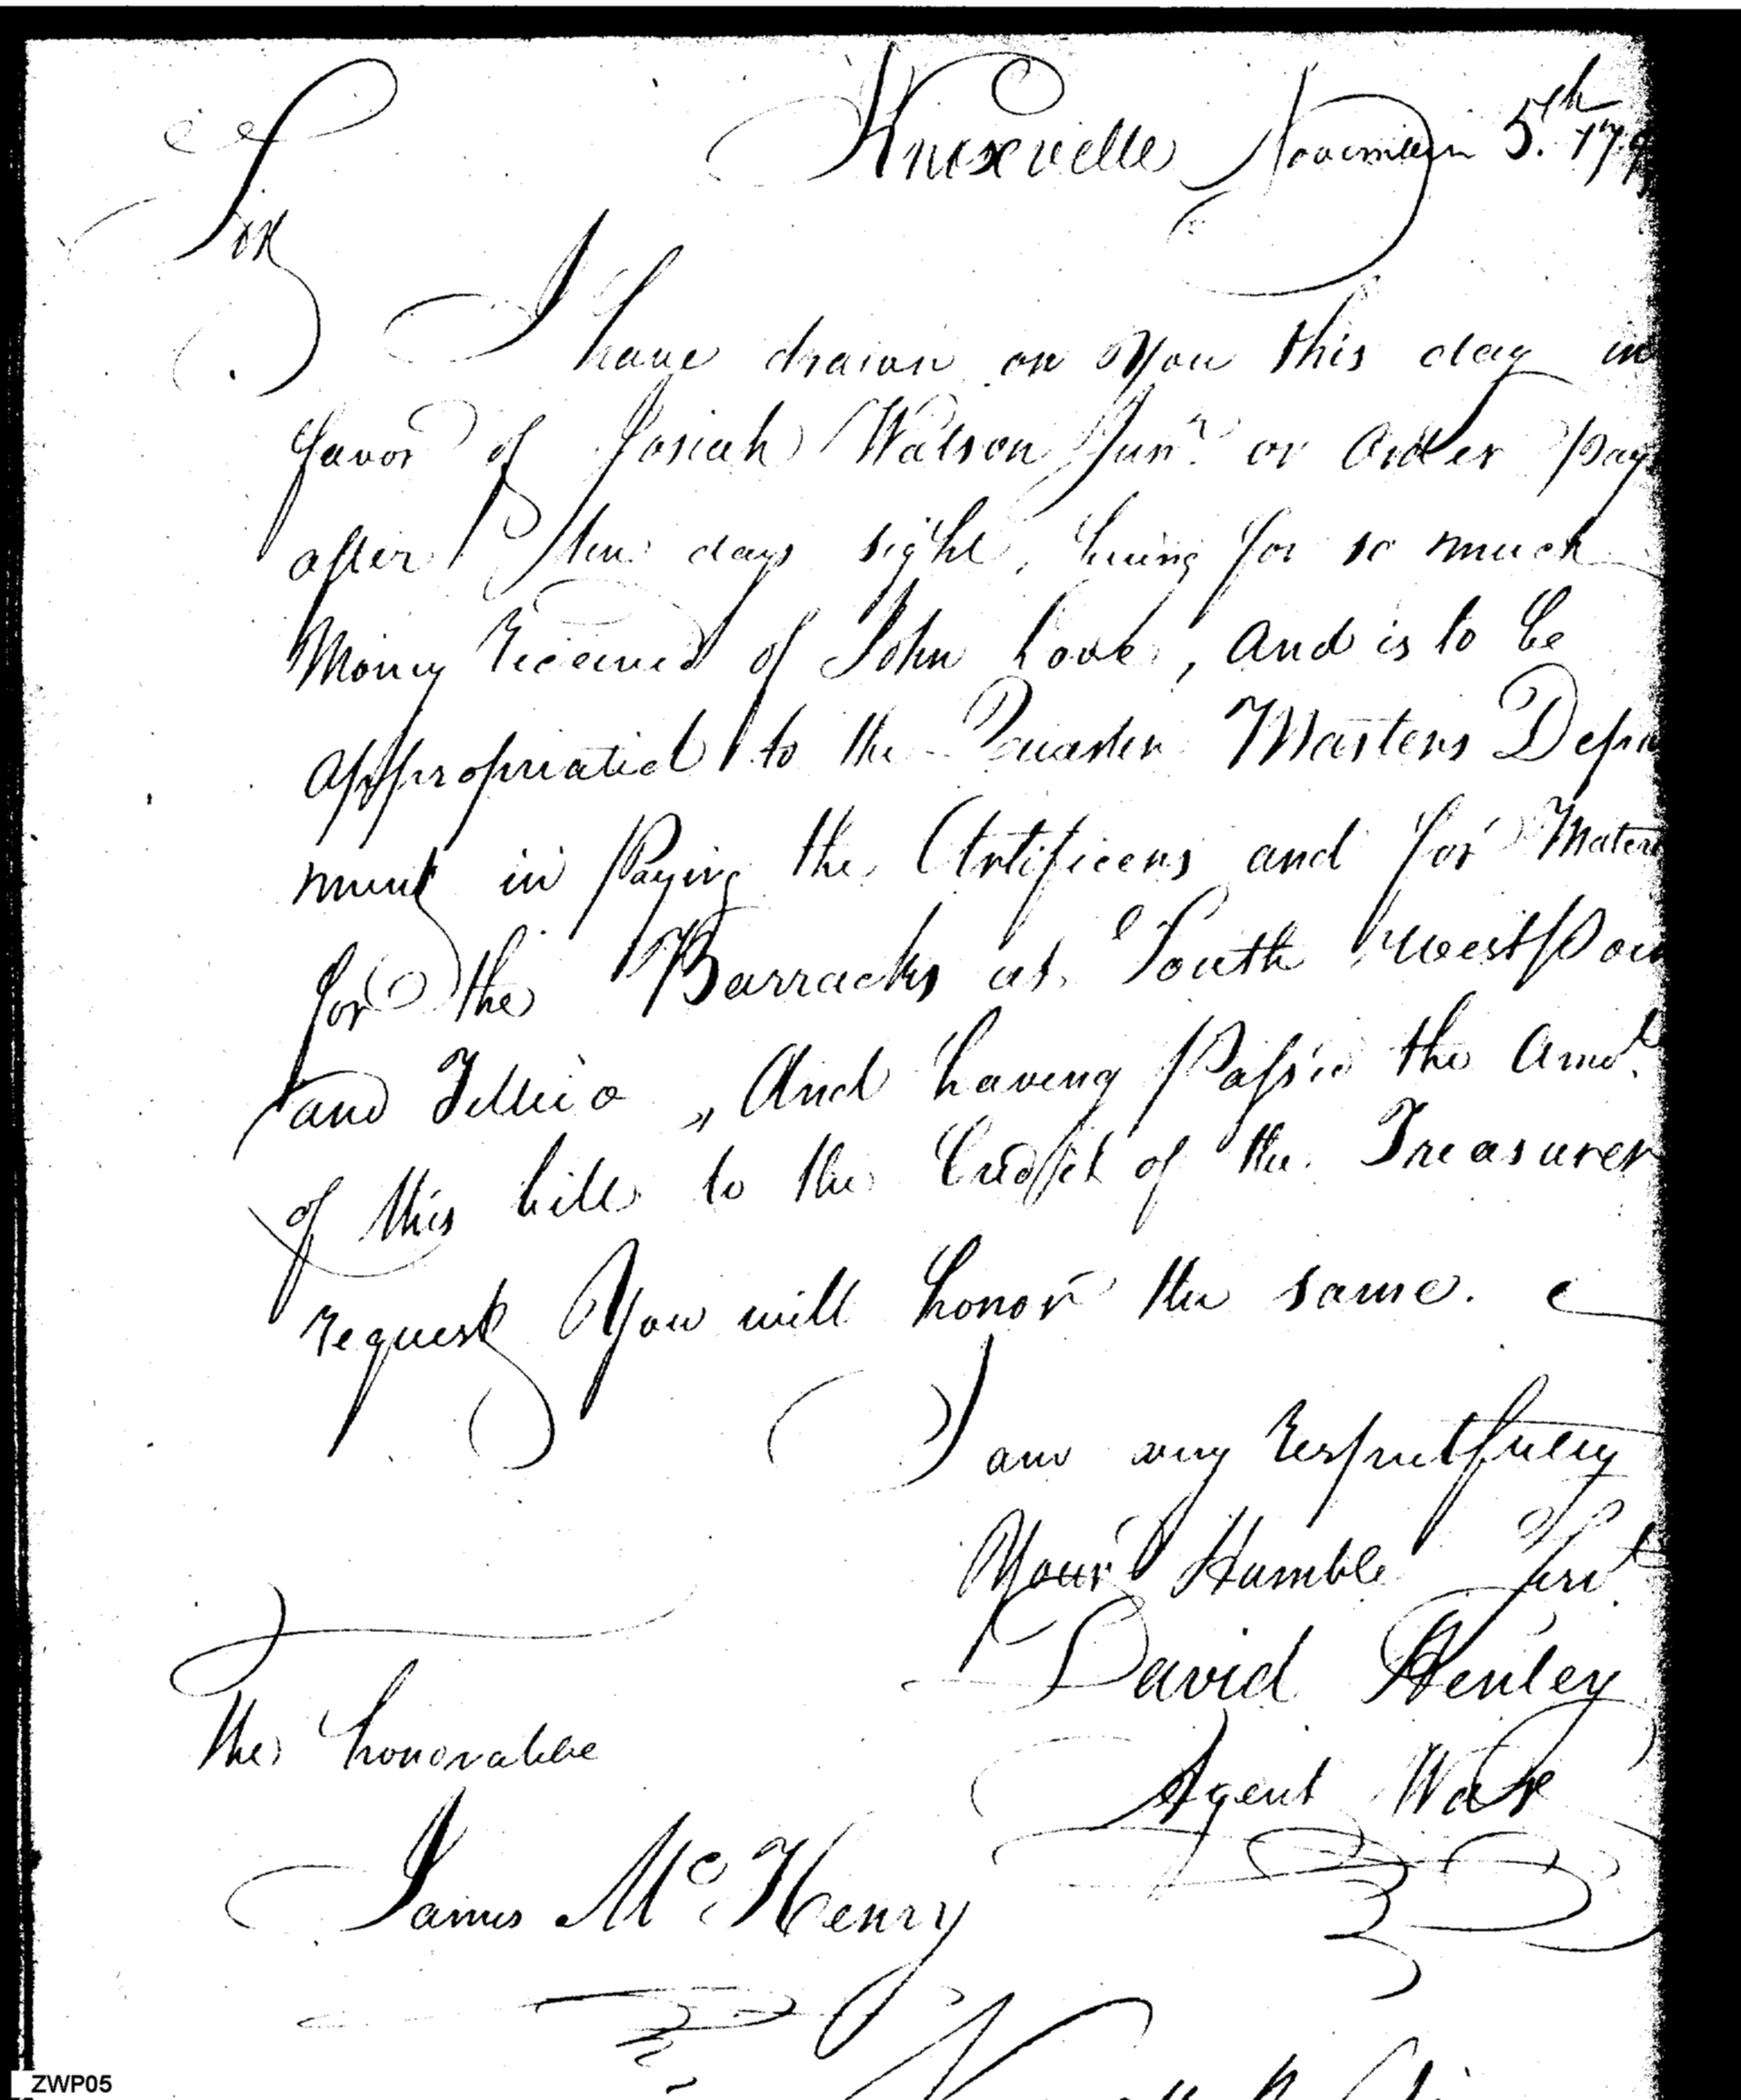 Knoxville November 5th. 179
Sir
I have drawn on You this day in
favor of Josiah Watson Junr. or Order pay
after ten days sight, being for so much
Money received of John Love, And is to be
appropriated to the Quarter Masters Depa
ment in Paying the Artificers and for Mater
for the Barracks at South west Poi
and Tellico, And having Pass'd the Amot.
of this bill to the Credit of the Treasurer
request You will honor the same.
I am very respectfully
Your Humble Servt.
David Henley
Agent War
The honorable
James McHenry
ZWP05